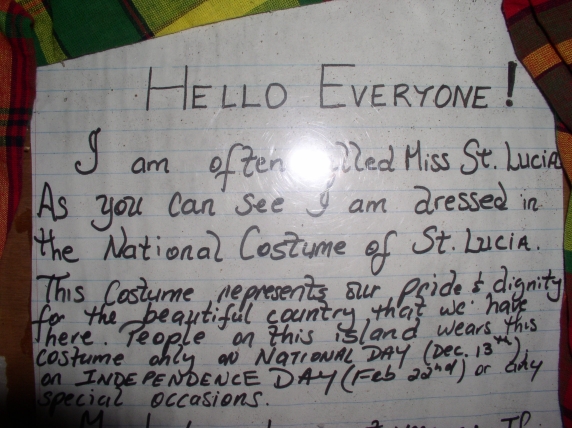 HELLO EVERYONE!
I am often called Miss St. LUCIA
As you can see I am dressed in
the National Costume of St. LUCIA.
This Costume represents our pride & dignity
for the beautiful country that we have
here. People on this island wears this
costume only on NATIONAL DAY (Dec. 13th)
on INDEPENDENCE DAY (Feb 22nd) or any
special occasions.